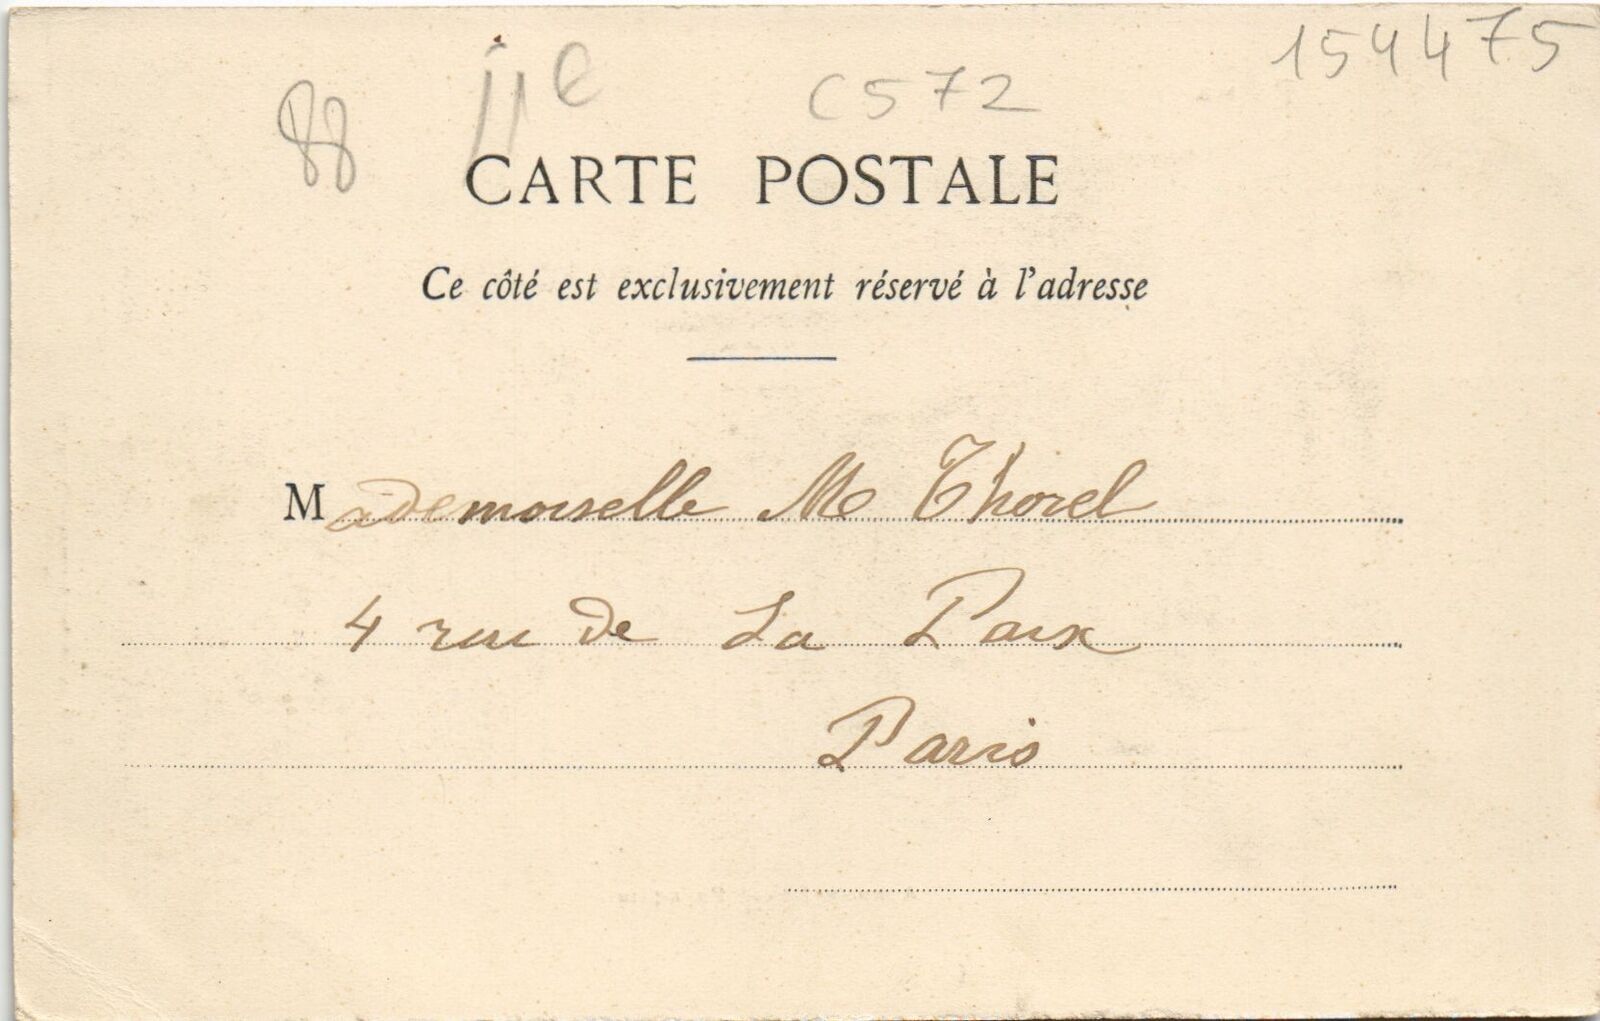 88 11e C572 154475
CARTE POSTALE
Ce côté est exclusivement réservé à l'adresse
Mademoiselle M Thorel
4 rue de La Paix
Paris